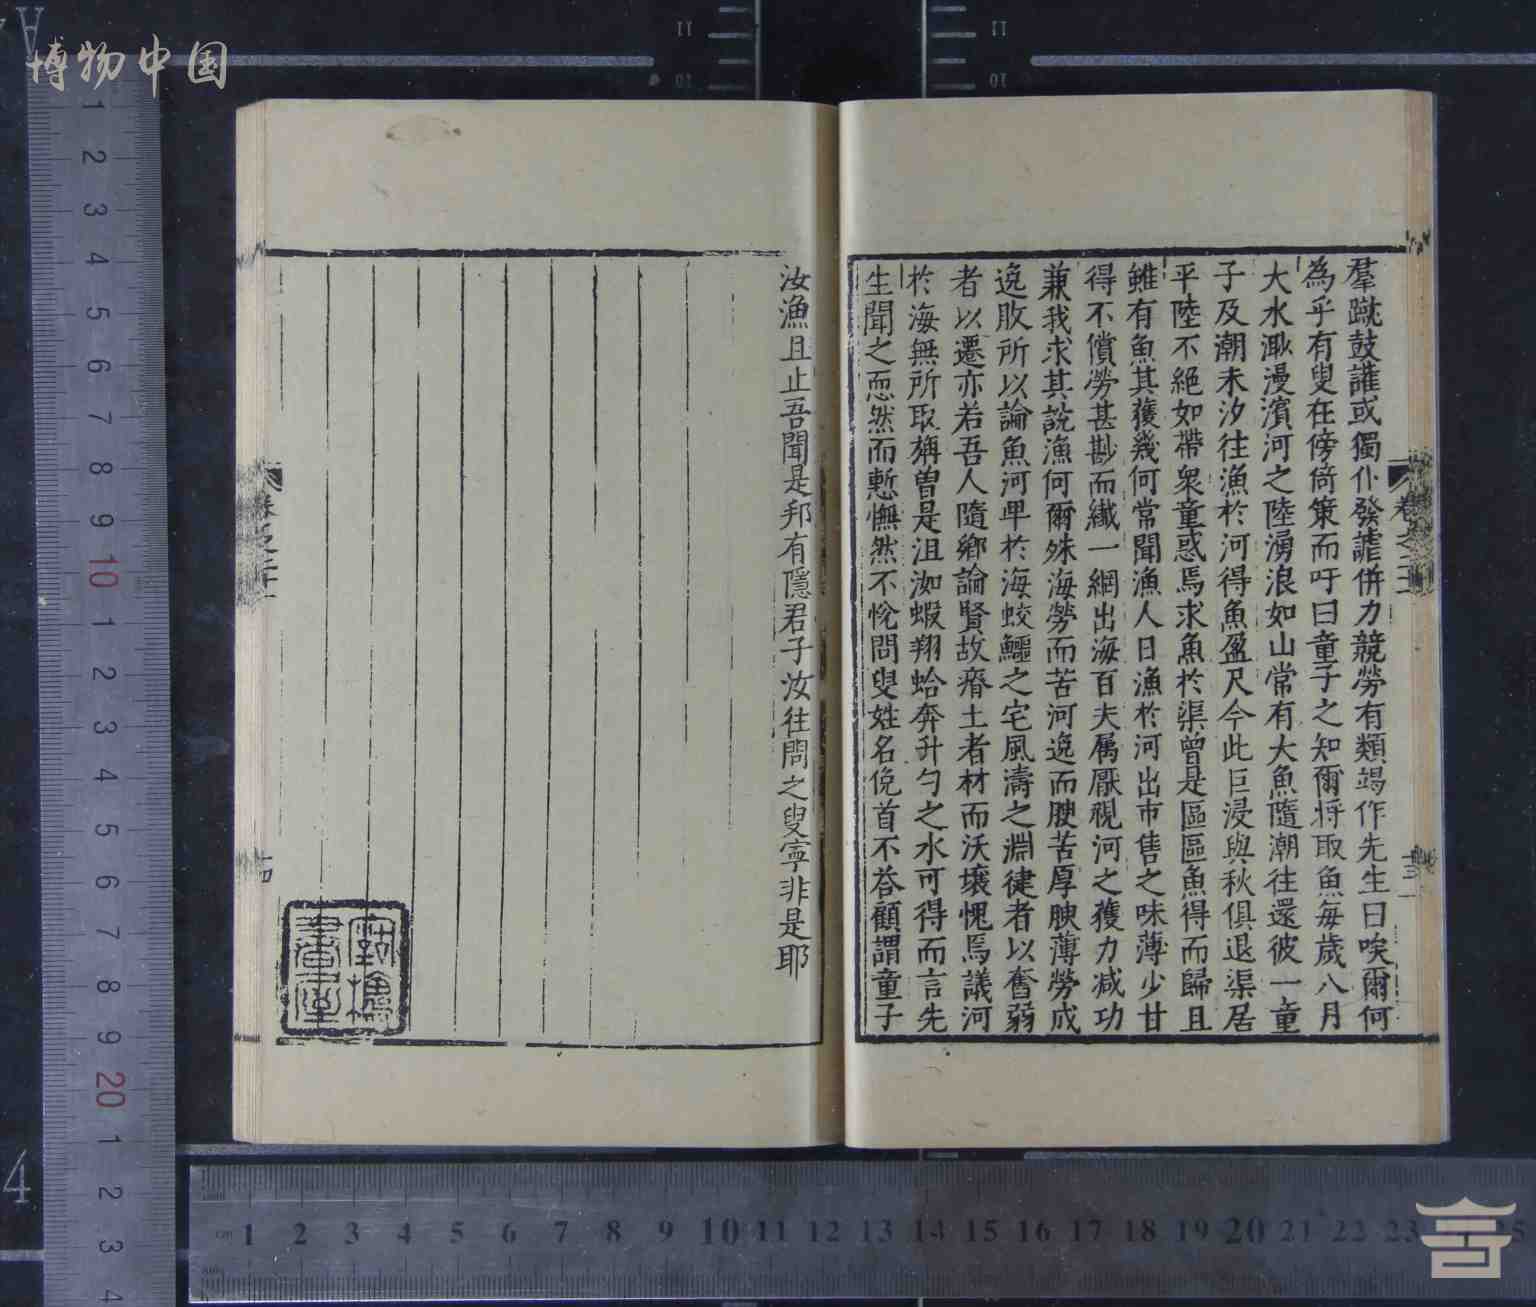 羣蹴鼓讙或獨仆發謔併力競勞有類竭作先生曰唉爾何
為乎有叟在傍倚策而吁曰童子之知爾將取魚每歲八月
大水瀰漫濱河之陸湧浪如山常有大魚隨潮往還彼一童
子及潮未汐往漁於河得魚盈尺今此巨浸與秋俱退渠居
平陸不絕如帶衆童惑焉求魚於渠曾是區區魚得而歸且
雖有魚其獲幾何常聞漁人日漁於河出市售之味薄少甘
得不償勞甚尠而纖一網出海百夫属厭視河之獲力减功
兼我求其説漁何爾殊海勞而苦河逸而腴苦厚腴薄勞成
逸敗所以論魚河甲於海蛟鱷之宅風濤之淵健者以奮弱
者以遷亦若吾人隨鄉論賢故瘠土者材而沃壤愧焉議河
於海無所取稱曽是沮洳蝦翔蛤奔升勺之水可得而言先
生聞之恧然而慙憮然不悅問叟姓名俛首不荅顧謂童子
卷之三
汝漁且止吾聞是邦有隱君子汝往問之叟寧非是耶
書堂
十四
博物中国
11
10
1 2 3 4 5 6 7 8 9 10 1 2 3 4 5 6 7 8 9 20 1 2 3 4
cm 1 2 3 4 5 6 7 8 9 10 11 12 13 14 15 16 17 18 19 20 21 22 23 25
4
A